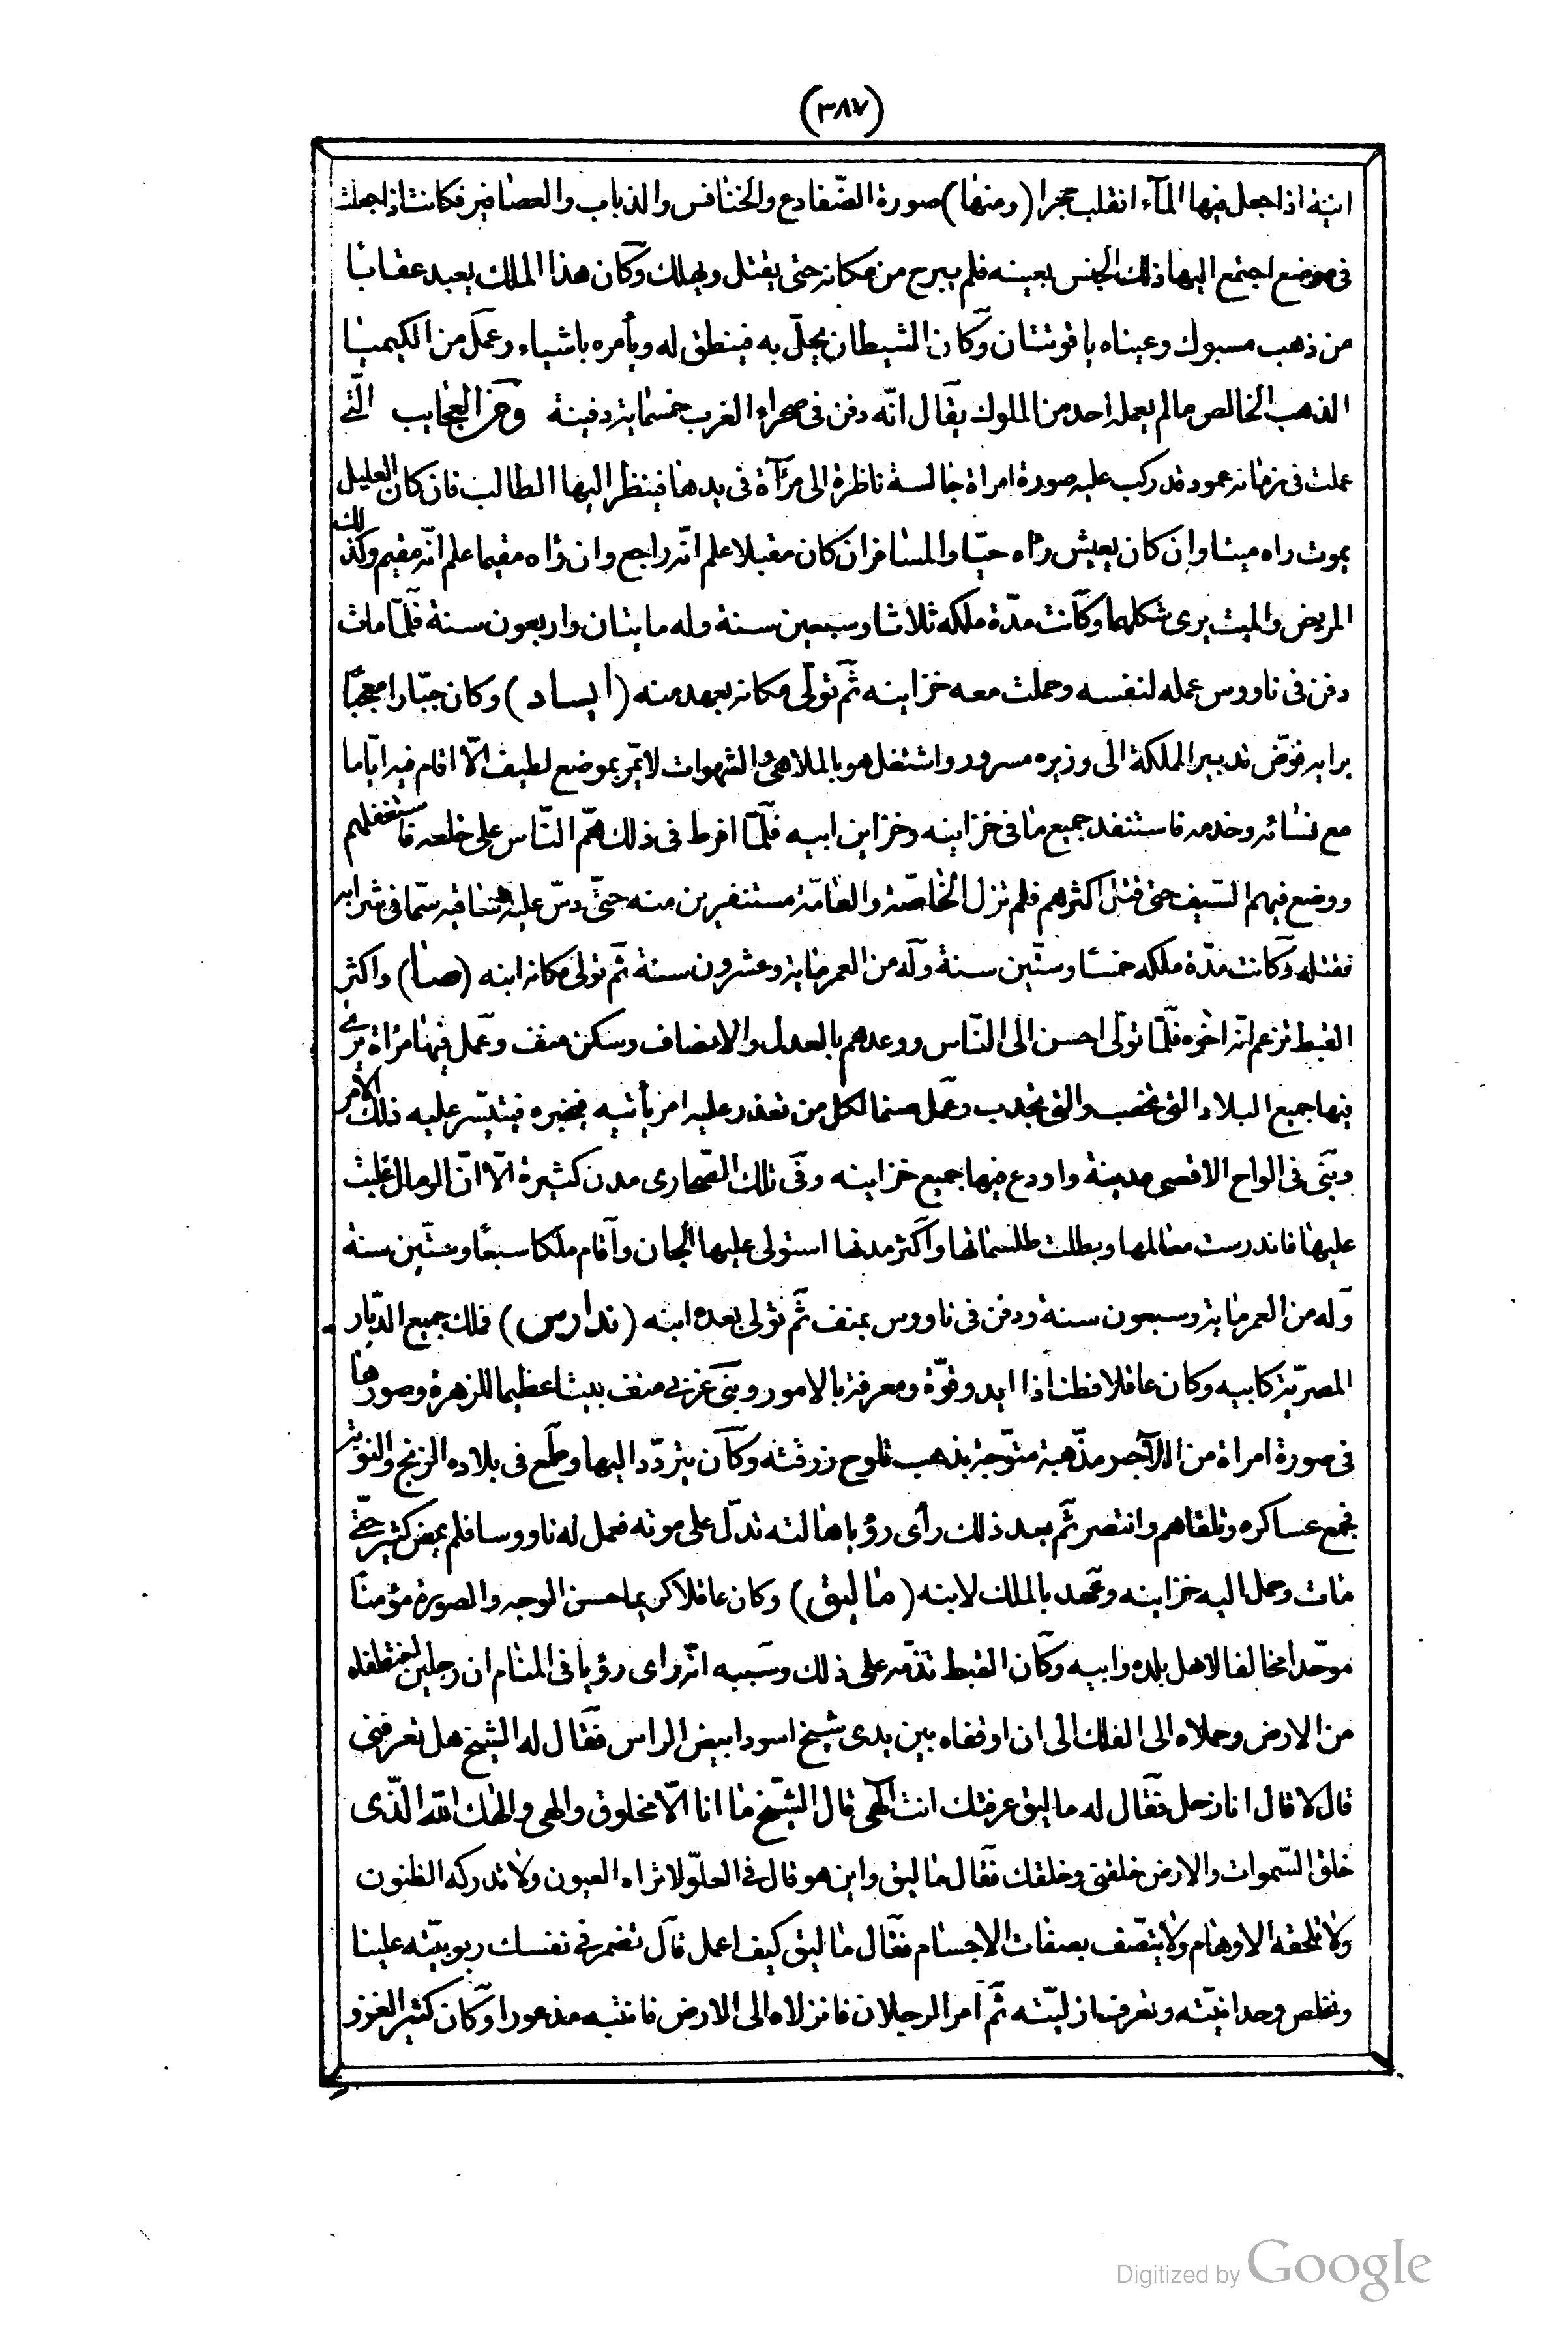 (٣٨٧)
انية اذا جعل فيها المآء انقلب حجرا (ومنها) صورة الضّفادع والخنافس والذباب والعصافير فكانت اذا جعلت
فى موضع اجتمع اليها ذلك الجنس بعينه فلم يبرح من مكانه حتى يقتل ويهلك وكان هذا الملك يعبد عقابًا
من ذهب مسبوك وعيناه ياقوتتان وكان الشيطان يحلّ به فينطق له ويأمره باشياء وعمل من الكيميا
الذهب الخالص مالم يعمله احد من الملوك يقال انّه دفن فى صحراء الغرب خمسماية دفينة ومن العجايب الّتى
عملت فى زمانه عمود قد ركب عليه صورة امراة جالسة ناظرة الى مرآة فى يدها فينظر اليها الطالب فان كان العليل
يموت راه ميتا وان كان يعيش رآه حيّا والمسافر ان كان مقبلا علم انّه راجع وان رآه مقيما علم انّه مقيم وكذلك
المريض والميت يرى شكلهما وكانت مدّة ملكه ثلاثا وسبعين سنة وله مايتان واربعون سنة فلمّا مات
دفن فى ناووس عمله لنفسه وحملت معه خزاينه ثمّ تولّى مكانه بعهد منه (ايساد) وكان جبّارا معجبًا
برايه فوّض تدبير المملكة الى وزيره مسرور واشتغل هو بالملاهى والشهوات لا يمرّ بموضع لطيف الّا اقام فيه ايّاما
مع نسائه وخدمه فاستنفد جميع ما فى خزاينه وخزاين ابيه فلمّا افرط فى ذلك همّ النّاس على خلعه فاستغفلهم
ووضع فيهم السّيف حتى قتل اكثرهم فلم تزل الخاصّة والعامّة مستنفرين منه حتّى دسّ عليه ساقيه سمّا فى شرابه
فقتله وكانت مدّة ملكه خمسًا وستّين سنة وله من العمر ماية وعشرون سنة ثم تولى مكانه ابنه (صا) واكثر
القبط تزعم انّه اخوه فلمّا تولّى احسن الى النّاس ووعدهم بالعدل والانصاف وسكن منف وعمل فيها مرآة يرى
فيها جميع البلاد التى تخصب والتى تجدب وعمل صنما لكل من تعذر عليه امر يأتيه فيخبره فيتيسّر عليه ذلك الامر
وبنى فى الواح الاقصى مدينة واودع فيها جميع خزاينه وفى تلك الصّحارى مدن كثيرة الّا انّ الرمال غلبت
عليها فاندرست معالمها وبطلت طلسماتها واكثر مدنها استولى عليها الجان واقام ملكا سبعًا وستّين سنة
وله من العمر ماية وسبعون سنة ودفن فى ناووس بمنف ثمّ تولى بعده ابنه (تدارس) فملك جميع الدّيار
المصريّة كابيه وكان عاقلا فطنا ذا ايد وقوّة ومعرفة بالامور وبنى غربى منف بيتا عظيما للزهرة وصورها
فى صورة امراة من الآجر مذهبة متوّجة بذهب تلوح زرقته وكان يتردّد اليها وطمع فى بلاده الزنج والنوبة
فجمع عساكره وتلقاهم وانتصر ثمّ بعد ذلك رأى رؤيا هالته تدلّ على موته فعمل له ناووسا فلم يمض كثير حتّى
مات وحمل اليه خزاينه وعهد بالملك لابنه (ماليق) وكان عاقلا كريما حسن الوجه والصورة مؤمنًا
موحّدا مخالفا لاهل بلده وابيه وكان القبط تذمّه على ذلك وسببه انّه راى رؤيا فى المنام ان رجلين اختطفاه
من الارض وحملاه الى الفلك الى ان اوقفاه بين يدى شيخ اسود ابيض الراس فقال له الشيخ هل تعرفنى
قال لا قال انا زحل فقال له ماليق عرفتك انت الهى قال الشيخ ما انا الّا مخلوق والهى والهك الله الّذى
خلق السّموات والارض خلقنى وخلقك فقال ماليق واين هو قال فى العلوّ لا تراه العيون ولا تدركه الظنون
ولا تلحقه الاوهام ولا يتصّف بصفات الاجسام فقال ماليق كيف اعمل قال تضمر فى نفسك ربوبيّته علينا
وتخلص وحدانيّته وتعرف ازليّته ثمّ امر الرجلان فانزلاه الى الارض فانتبه مذعورا وكان كثير الغزو
Digitized by Google